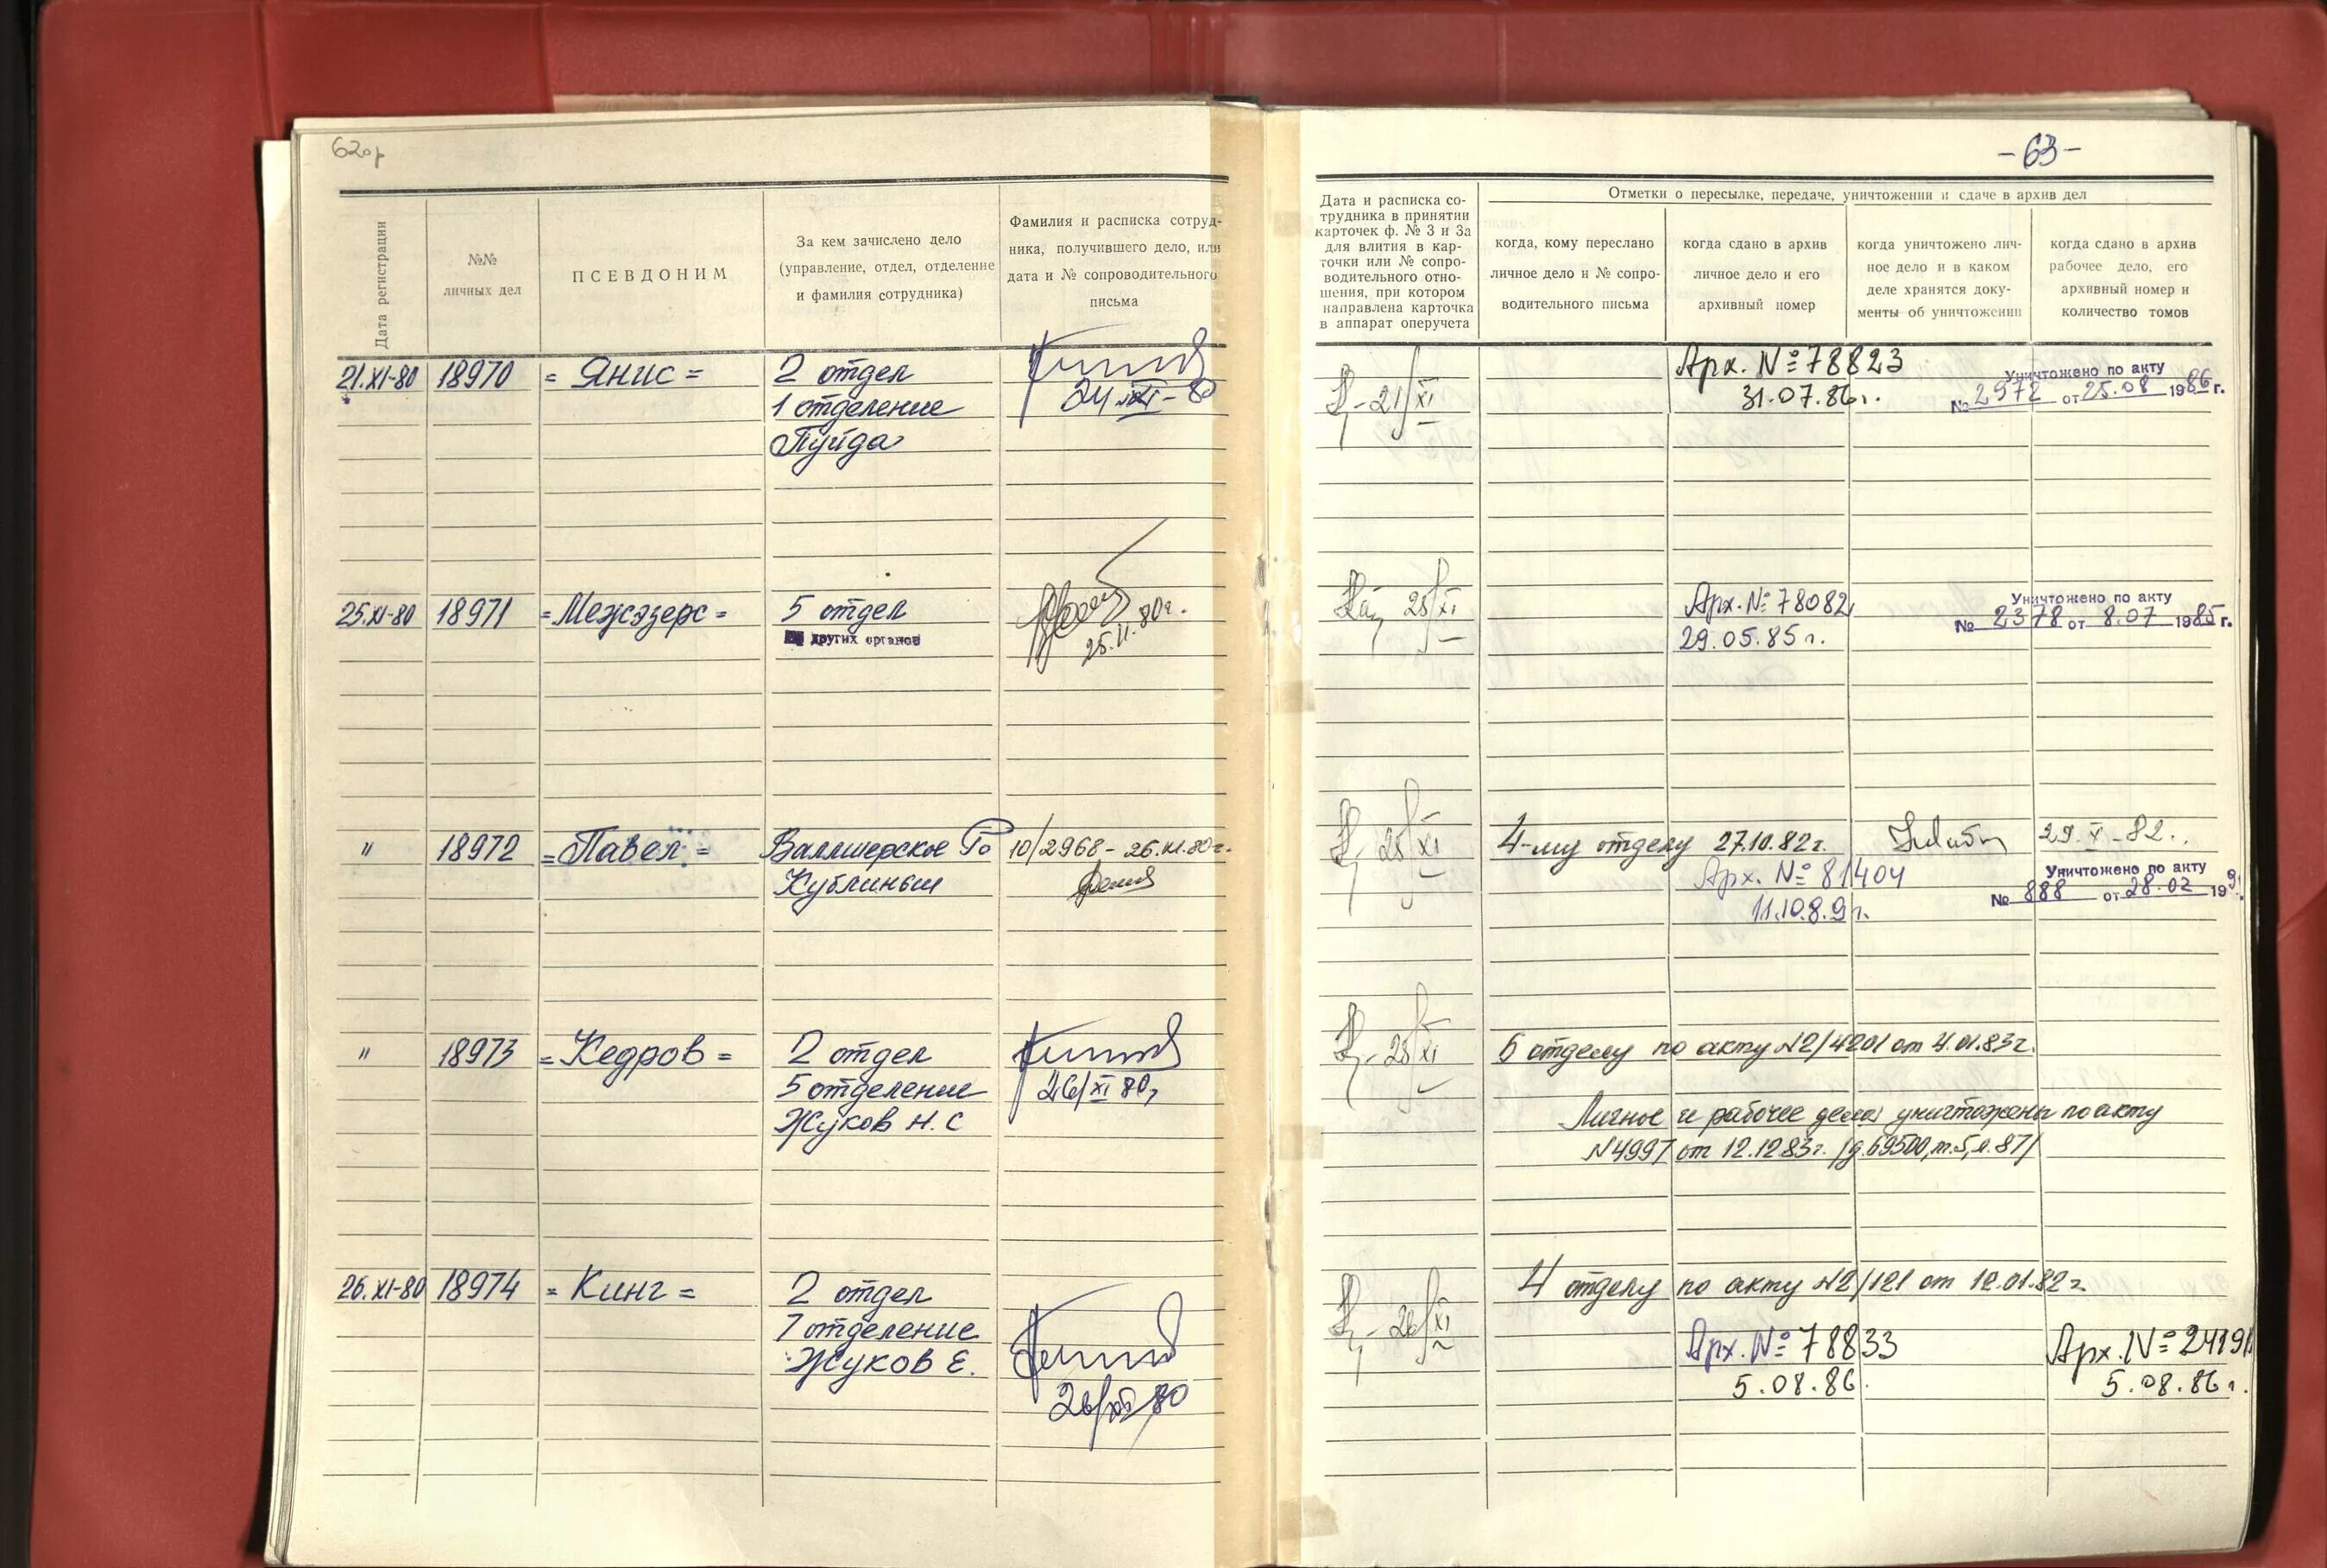 62об
Дата регистрации
№№
личных дел
ПСЕВДОНИМ
За кем зачислено дело
(управление, отдел, отделение
и фамилия сотрудника)
Фамилия и расписка сотруд-
ника, получившего дело, или
дата и № сопроводительного
письма
21.XI-80 18970 = Янис = 2 отдел
24 XI-80
1 отделение
Пуйда
25.XI-80 18971 = Межэзерс = 5 отдел
других органов
25.11.80г.
" 18972 = Павел = Валмиерское РО 10/2968 - 26.XI.80г.
Кублиньш
" 18973 = Кедров = 2 отдел
5 отделение 26/XI 80г
Жуков Н.С
26.XI-80 18974 = Кинг = 2 отдел
7 отделение
Жуков Е.
26/XI 80
-63-
Дата и расписка со-
трудника в принятии
карточек ф. № 3 и 3а
для влития в кар-
точки или № сопро-
водительного отно-
шения, при котором
направлена карточка
в аппарат оперучета
Отметки о пересылке, передаче, уничтожении и сдаче в архив дел
когда, кому переслано
личное дело и № сопро-
водительного письма
когда сдано в архив
личное дело и его
архивный номер
когда уничтожено лич-
ное дело и в каком
деле хранятся доку-
менты об уничтожении
когда сдано в архив
рабочее дело, его
архивный номер и
количество томов
21/XI
Арх. № 78823
31.07.86г.
Уничтожено по акту
№ 2972 от 25.08 1986 г.
25/XI
Арх. № 78082
29.05.85г.
Уничтожено по акту
№ 2378 от 8.07 1985 г.
25/XI
4-му отделу 27.10.82г. 29.X-82.
Арх. № 81404
11.10.89г.
Уничтожено по акту
№ 888 от 28.02 199
25/XI
6 отделу по акту №2/4201 от 4.01.83г.
Личное и рабочее дела уничтожены по акту
№4997 от 12.12.83г. /д.69500, т.5, л.87/
26/XI
4 отделу по акту №2/121 от 12.01.82г.
Арх. № 78833
5.08.86.
Арх. № 24191
5.08.86г.